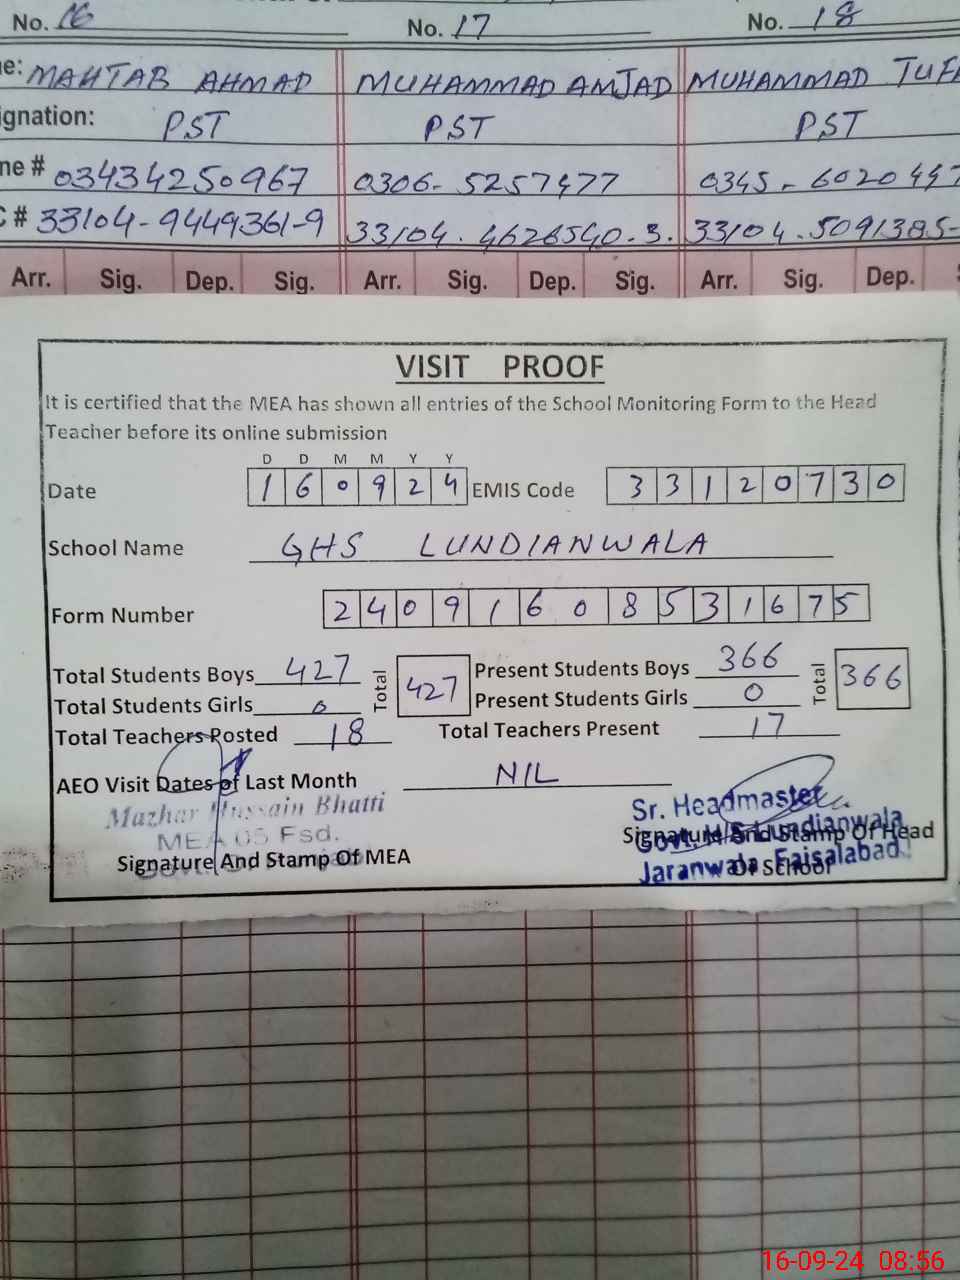 No. 16 No. 17 No. 18
MAHTAB AHMAD MUHAMMAD AMJAD MUHAMMAD
PST PST PST
03434250967 0306-5257477
33104-9449361-9 33104.4626540.3. 33104.5091385-
Arr. Sig. Dep. Sig. Arr. Sig. Dep. Sig. Arr. Sig. Dep.
VISIT PROOF
It is certified that the MEA has shown all entries of the School Monitoring Form to the Head
Teacher before its online submission
D D M M Y Y
Date 1 6 0 9 2 4 EMIS Code 3 3 1 2 0 7 3 0
School Name GHS LUNDIANWALA
Form Number 2 4 0 9 1 6 0 8 5 3 1 6 7 5
Total Students Boys 427 Total 427 Present Students Boys 366 Total 366
Total Students Girls 0 Present Students Girls 0
Total Teachers Posted 18 Total Teachers Present 17
AEO Visit Dates of Last Month NIL
Mazhar Hussain Bhatti
MEA 05 Fsd.
Signature And Stamp Of MEA
Sr. Headmaster
Signature And Stamp Of Head
Govt. H/S Lundianwala
Jaranwala Faisalabad.
Of School
16-09-24 08:56